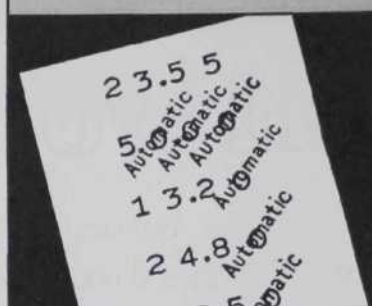 2 3.5 5
5.000
Automatic
Automatic
Automatic
1 3.20
Automatic
2 4.80
Automatic